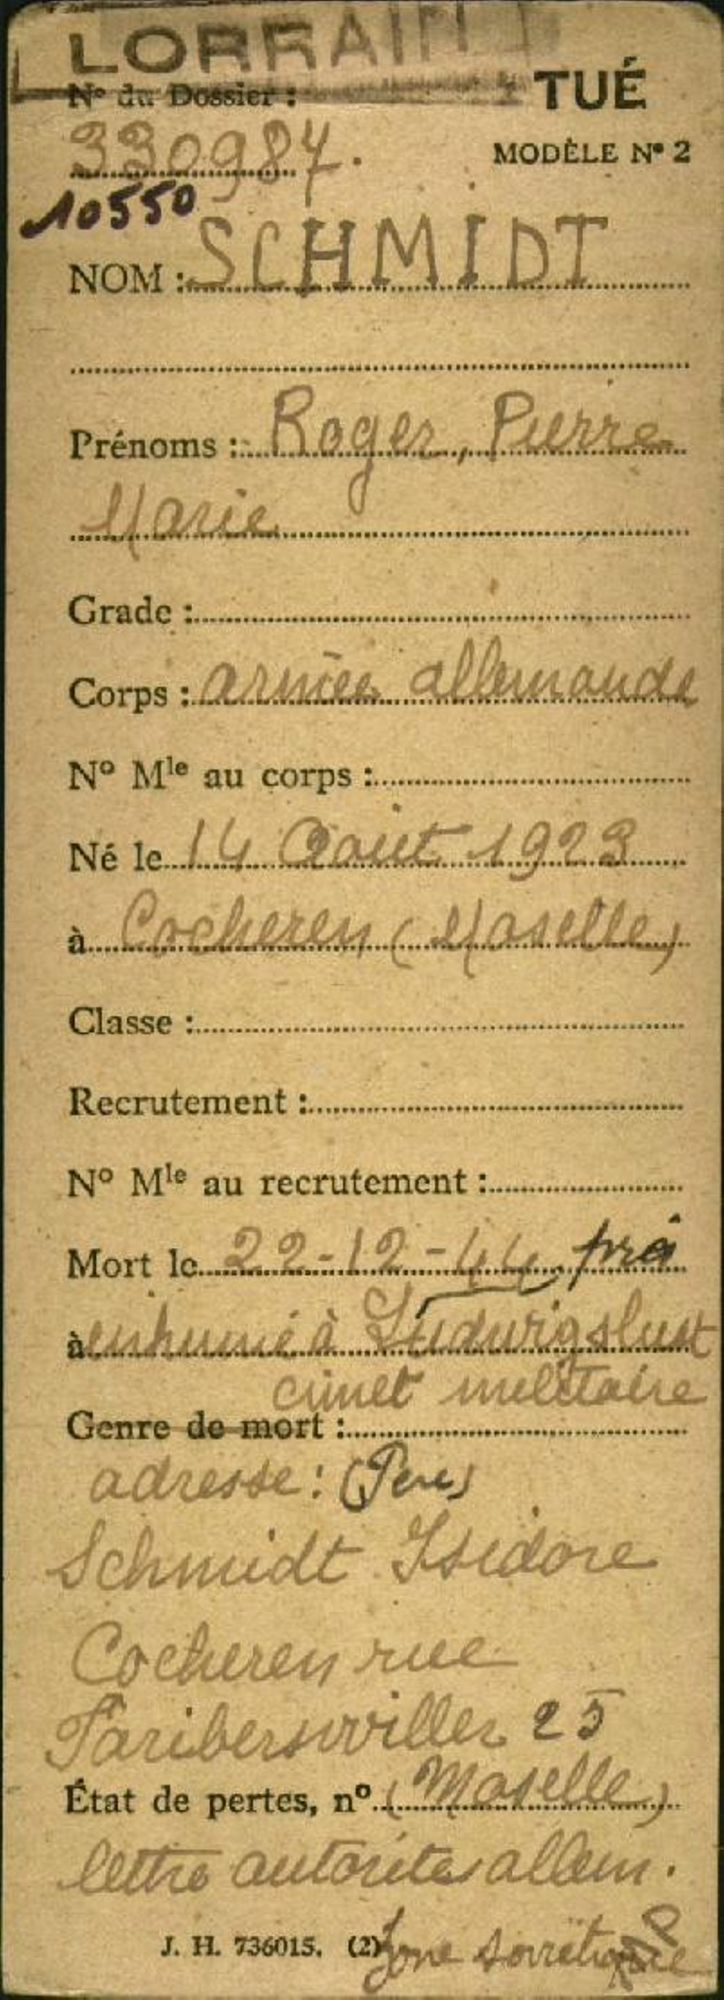 LORRAIN
N° du Dossier :
TUÉ
330987.
MODÈLE N° 2
10550
NOM : SCHMIDT
Prénoms : Roger, Pierre
Marie
Grade :
Corps : armée allemande
N° Mle au corps :
Né le 14 Août 1923
à Cocheren (Moselle)
Classe :
Recrutement :
N° Mle au recrutement :
Mort le 22-12-44
à enhumé à Ludwigslust
cimet militaire
Genre de mort :
adresse : (Père)
Schmidt Isidore
Cocheren rue
Faribersviller 25
État de pertes, n° (Moselle)
lettre autorités allem.
J. H. 736015. (2) Zone soviétique